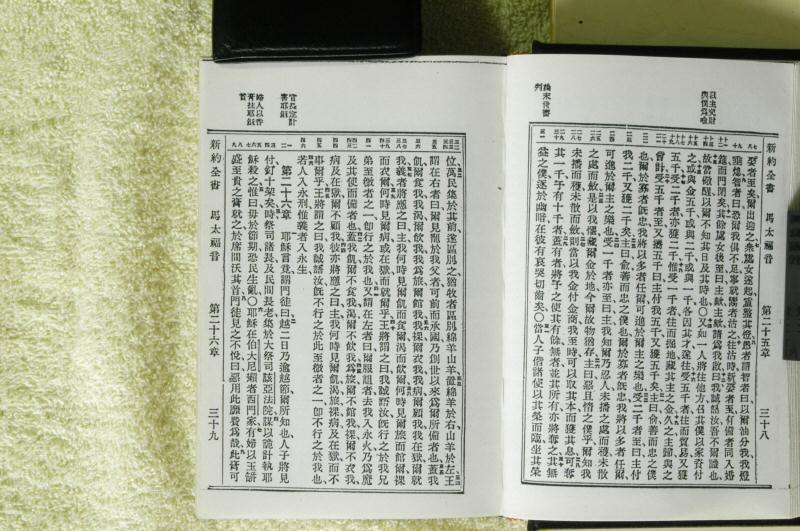 以主交財
與僕為喻
第二十五章
三十八
娶者至矣爾出迎之衆處女遂起置整其燈愚者謂智者曰以爾油分我我燈
熄矣智者曰恐爾我俱不足寧就鬻者沽之往沽時新娶者至有備者同入婚
筵而門閉矣其餘處女後至曰主歟主歟請為我啟曰我誠語汝吾不爾識也
故當儆醒以爾不知其日及其時也○又如一人將往他方召其僕以家資付
之或與金五千或與二千或與一千各因其才遂往受五千者往而貿易又獲
五千受二千者亦獲二千惟受一千者往而掘地藏其主之金久之主歸與之
會計受五千者至又攜五千曰主付我五千又獲五千矣主曰俞善而忠之僕
也爾於寡者旣忠我將以多者任爾可進於爾主之樂也受二千者至曰主付
我二千又獲二千矣主曰俞善而忠之僕也爾於寡者旣忠我將以多者任爾
可進於爾主之樂也受一千者亦至曰主我知爾乃忍人未播之處而穫未散
之處而斂是以我懼藏爾金於地今爾故物猶存主曰惡且惰之僕乎爾知我
未播而穫未散而斂則當以我金付金商我至時可以取其本而獲其息可奪
其一千予有十千者蓋有者將予之使其有餘無者並其所有亦將奪之其無
益之僕逐於幽暗在彼有哀哭切齒矣○當人子偕諸使以其榮而臨坐其榮
新約全書
馬太福音
第二十六章
三十九
位萬民集於其前遂區別之猶牧者區別綿羊山羊置綿羊於右山羊於左王
謂在右者曰爾見寵於我父者可前而承國乃創世以來為爾所備者也蓋我
飢爾食我我渴爾飲我我為旅爾館我我裸爾衣我我病爾顧我我在獄爾就
我義者將應之曰主我何時見爾飢而食爾渴而飲爾何時見爾旅而館爾裸
而衣爾何時見爾病或在獄而就爾乎王將謂之曰我誠語汝旣行之於我兄
弟至微者之一卽行之於我也又謂在左者曰爾服詛者去我入永火乃為魔
及其使而備者也蓋我飢爾不食我渴爾不飲我為旅爾不館我裸爾不衣我
病及在獄爾不顧我彼亦將應之曰主我何時見爾飢渴旅裸病及在獄而不
事爾乎王將謂之曰我誠語汝旣不行之於此至微者之一卽不行之於我也
若人入永刑惟義者入永生
第二十六章
耶穌言竟謂門徒曰越二日乃逾越節爾所知也人子將見
付釘十架矣時祭司諸長及民間長老集於大祭司該亞法院謀以詭計執耶
穌殺之惟曰毋於節期恐民生亂○耶穌在伯大尼癩者西門家有婦以玉缾
盛至貴之膏就之於席間沃其首門徒見之不悅曰惡用此靡費為哉此膏可